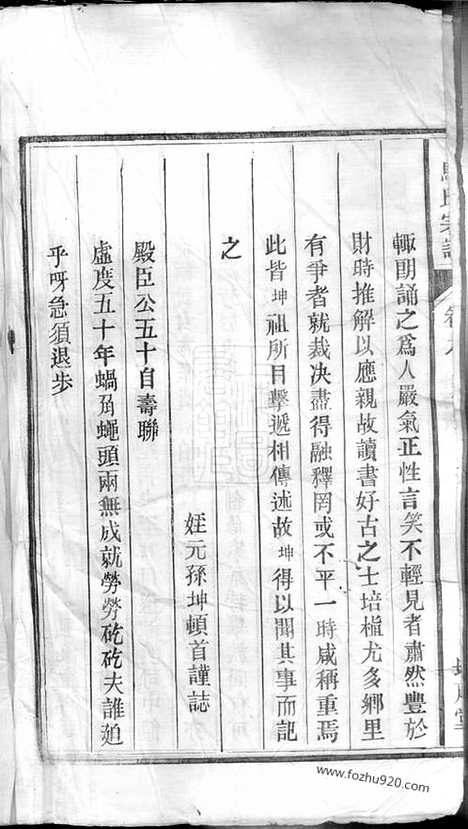 馬氏宗譜
輙朗誦之爲人嚴氣正性言笑不輕見者肅然豐於
財時推解以應親故讀書好古之士培植尤多鄉里
有爭者就裁决盡得融釋罔或不平一時咸稱重焉
此皆坤祖所目擊遞相傳述故坤得以聞其事而記
之
姪元孫坤頓首謹誌
殿臣公五十自壽聯
虛度五十年蝸角蠅頭兩無成就勞勞矻矻夫誰廹
乎呀急須退步
www.fozhu920.com